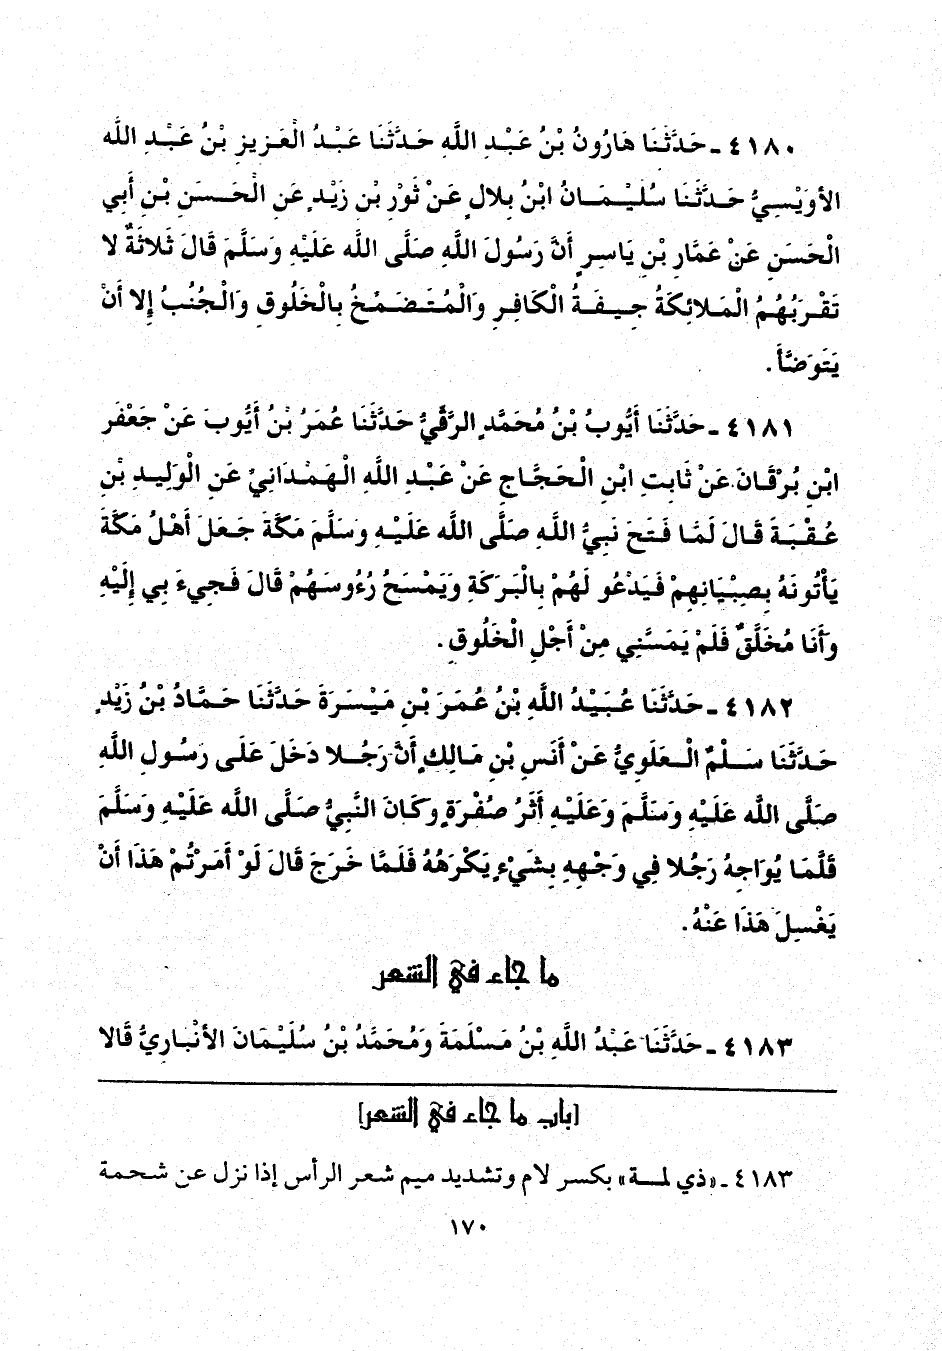 ٤١٨٠ ـ حَدَّثَنَا هَارُونُ بْنُ عَبْدِ اللَّهِ حَدَّثَنَا عَبْدُ الْعَزِيزِ بْنُ عَبْدِ اللَّه
الأوَيْسِيُّ حَدَّثَنَا سُلَيْمَانُ ابْنُ بِلالٍ عَنْ ثَوْرِ بْنِ زَيْدٍ عَنِ الْحَسَنِ بْنِ أَبِي
الْحَسَنِ عَنْ عَمَّارِ بْنِ يَاسِرٍ أَنَّ رَسُولَ اللَّهِ صَلَّى اللَّه عَلَيْهِ وَسَلَّمَ قَالَ ثَلاثَةٌ لا
تَقْرَبُهُمُ الْمَلائِكَةُ جِيفَةُ الْكَافِرِ وَالْمُتَضَمِّخُ بِالْخَلُوقِ وَالْجُنُبُ إِلا أَنْ
يَتَوَضَّأَ .
٤١٨١ ـ حَدَّثَنَا أَيُّوبُ بْنُ مُحَمَّدٍ الرَّقِّيُّ حَدَّثَنَا عُمَرُ بْنُ أَيُّوبَ عَنْ جَعْفَرِ
ابْنِ بُرْقَانَ عَنْ ثَابِتِ ابْنِ الْحَجَّاجِ عَنْ عَبْدِ اللَّهِ الْهَمْدَانِيِّ عَنِ الْوَلِيدِ بْنِ
عُقْبَةَ قَالَ لَمَّا فَتَحَ نَبِيُّ اللَّهِ صَلَّى اللَّه عَلَيْهِ وَسَلَّمَ مَكَّةَ جَعَلَ أَهْلُ مَكَّةَ
يَأْتُونَهُ بِصِبْيَانِهِمْ فَيَدْعُو لَهُمْ بِالْبَرَكَةِ وَيَمْسَحُ رُءُوسَهُمْ قَالَ فَجِيءَ بِي إِلَيْهِ
وَأَنَا مُخَلَّقٌ فَلَمْ يَمَسَّنِي مِنْ أَجْلِ الْخَلُوقِ .
٤١٨٢ ـ حَدَّثَنَا عُبَيْدُ اللَّهِ بْنُ عُمَرَ بْنِ مَيْسَرَةَ حَدَّثَنَا حَمَّادُ بْنُ زَيْدٍ
حَدَّثَنَا سَلْمٌ الْعَلَوِيُّ عَنْ أَنَسِ بْنِ مَالِكٍ أَنَّ رَجُلا دَخَلَ عَلَى رَسُولِ اللَّهِ
صَلَّى اللَّه عَلَيْهِ وَسَلَّمَ وَعَلَيْهِ أَثَرُ صُفْرَةٍ وَكَانَ النَّبِيُّ صَلَّى اللَّه عَلَيْهِ وَسَلَّمَ
قَلَّمَا يُوَاجِهُ رَجُلا فِي وَجْهِهِ بِشَيْءٍ يَكْرَهُهُ فَلَمَّا خَرَجَ قَالَ لَوْ أَمَرْتُمْ هَذَا أَنْ
يَغْسِلَ هَذَا عَنْهُ .
ما جاء في الشعر
٤١٨٣ ـ حَدَّثَنَا عَبْدُ اللَّهِ بْنُ مَسْلَمَةَ وَمُحَمَّدُ بْنُ سُلَيْمَانَ الأَنْبَارِيُّ قَالا
[باب ما جاء في الشعر]
٤١٨٣ ـ «ذي لمة» بكسر لام وتشديد ميم شعر الرأس إذا نزل عن شحمة
١٧٠